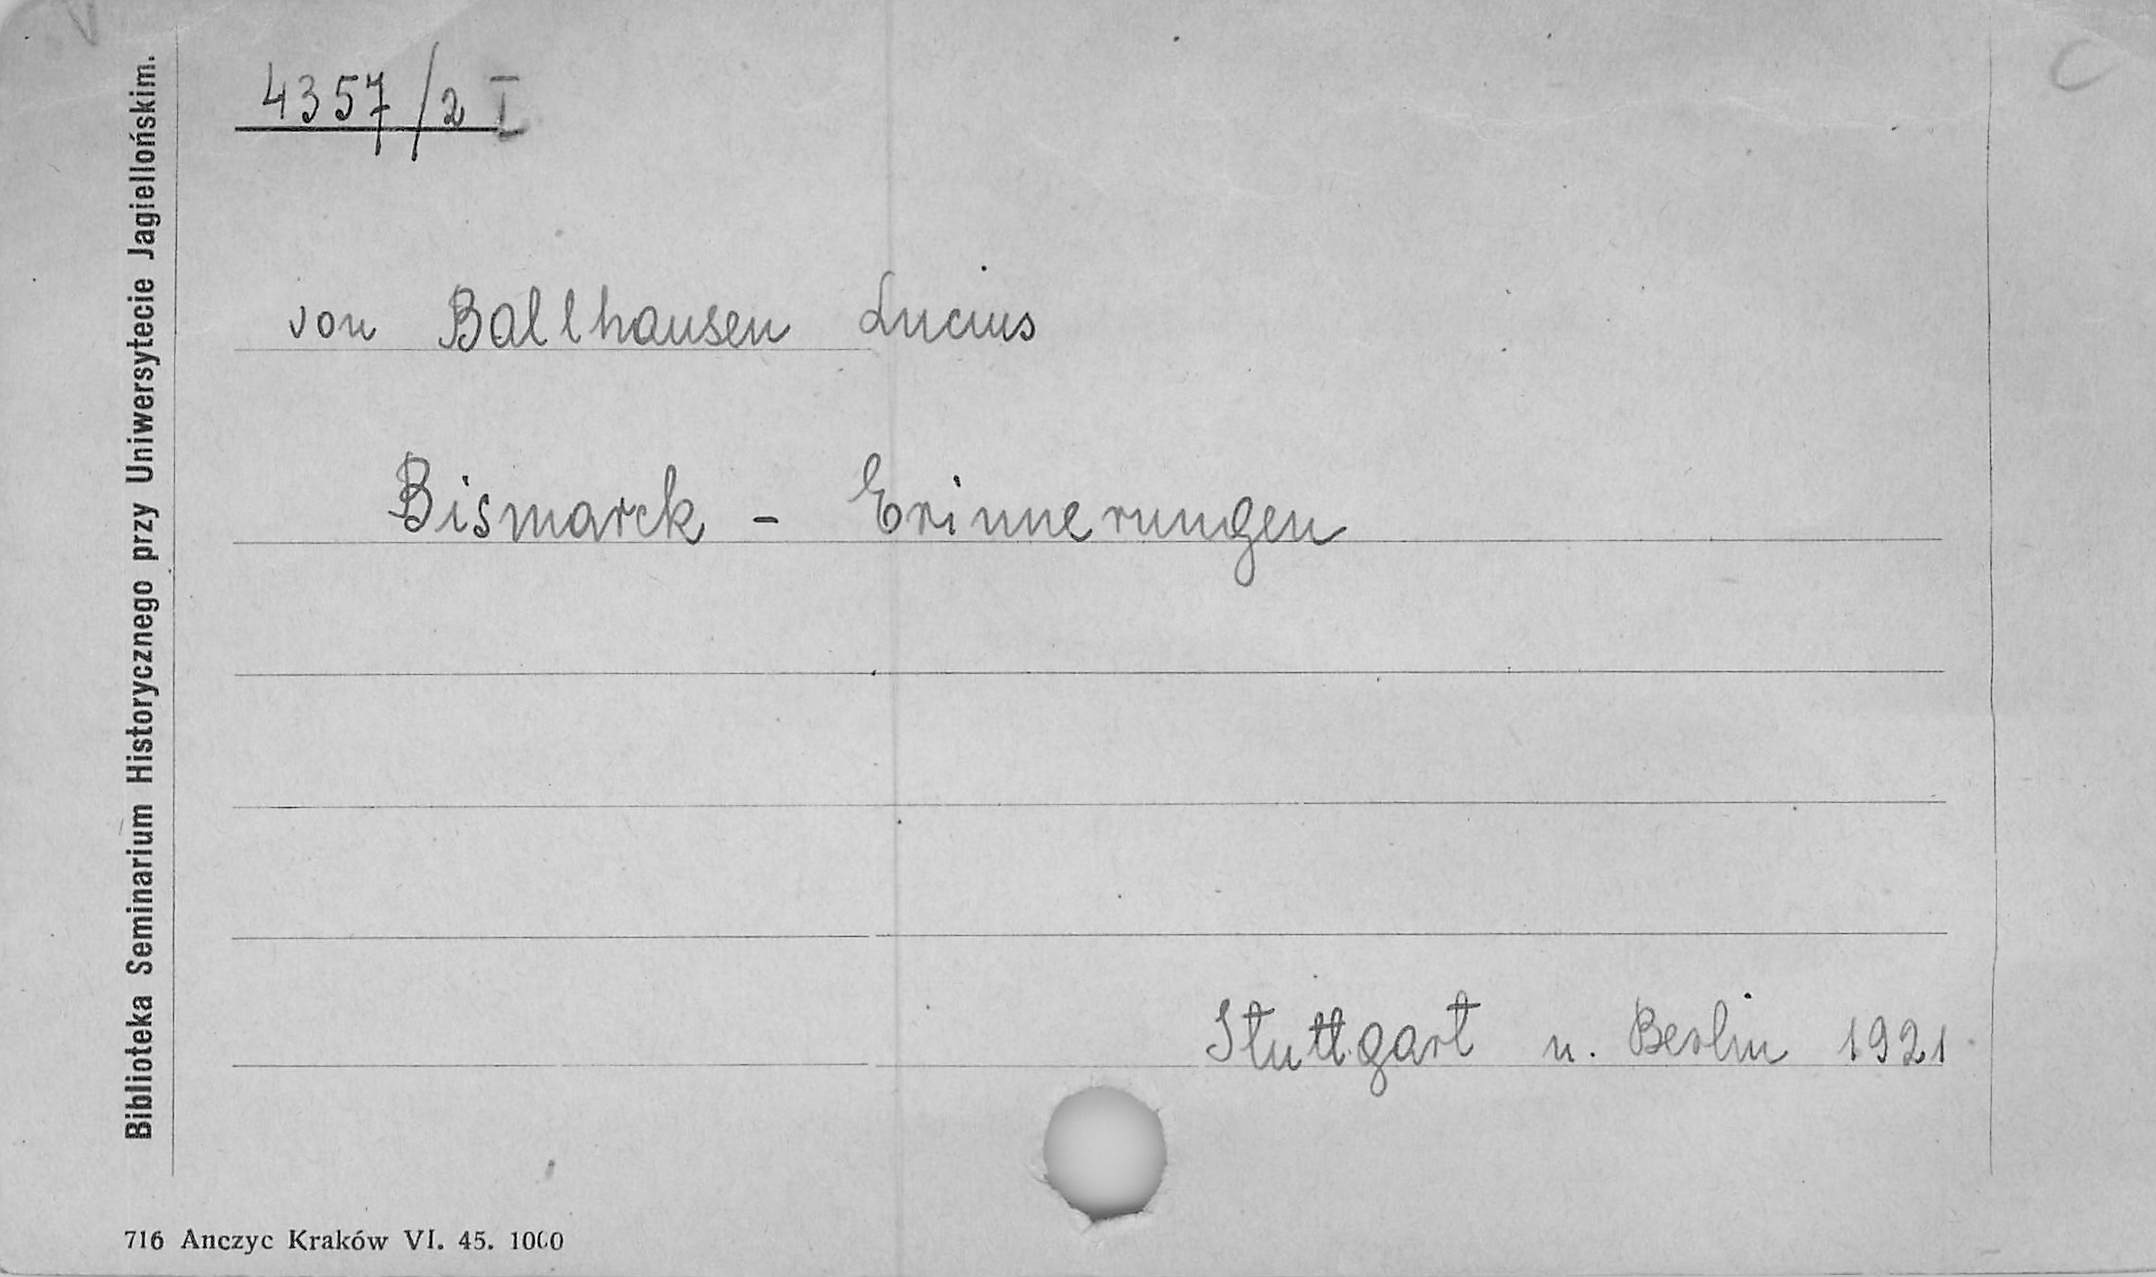 4357/2 I
von Ballhausen Lucius
Bismarck - Erinnerungen
Stuttgart u. Berlin 1921
Biblioteka Seminarium Historycznego przy Uniwersytecie Jagiellońskim.
716 Anczyc Kraków VI. 45. 1000